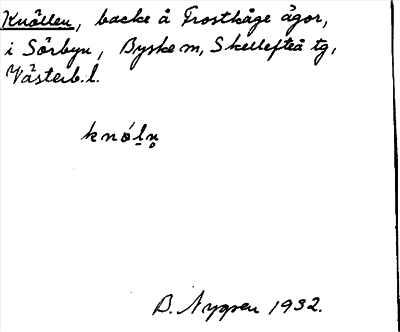 Knöllen, backe å Frostkåge ägor,
i Sörbyn, Byske m, Skellefteå tg,
Västerb.l.
knólṇ
B. Nygren 1932.